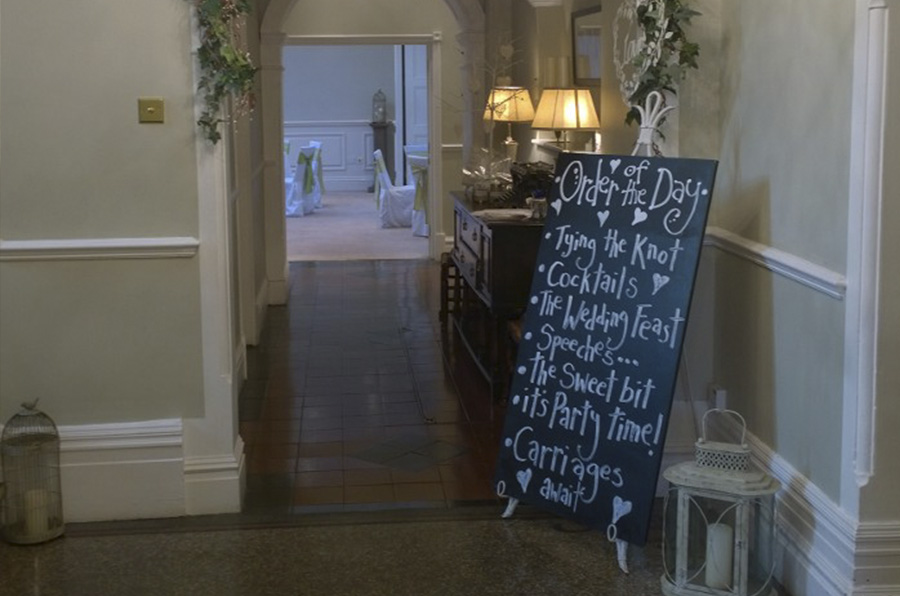 Order of the Day
• Tying the Knot
• Cocktails
• The Wedding Feast
• Speeches...
• the Sweet bit
• it's Party time!
• Carriages
await